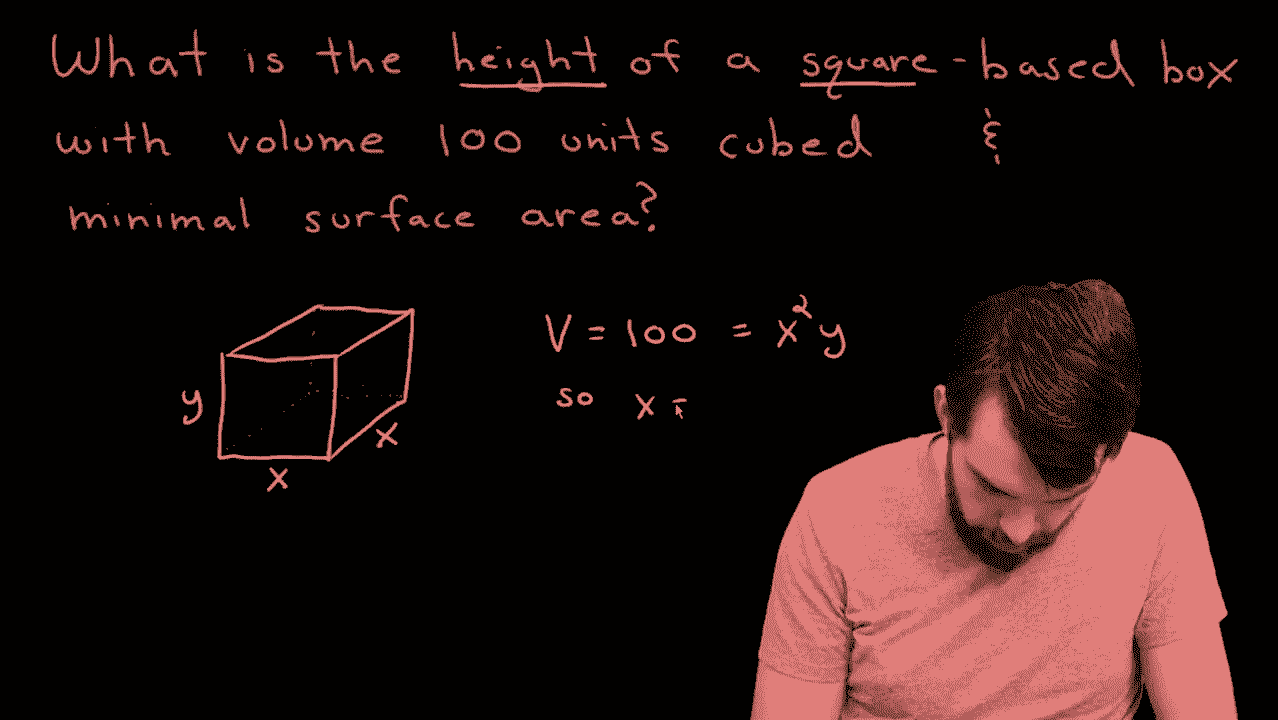 What is the height of a square-based box
with volume 100 units cubed &
minimal surface area?
V = 100 = x²y
so x =
y
x
x